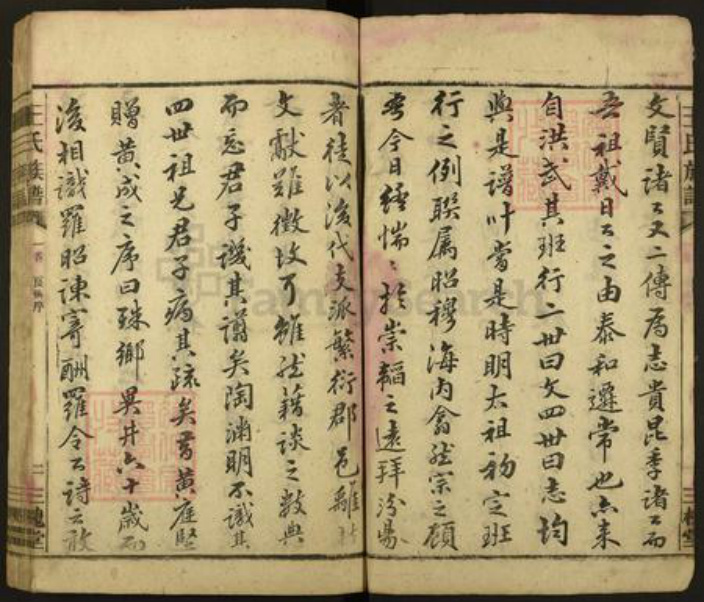 文賢諸公又二傳為志貴昆季諸公而
吾祖戴日公之由泰和遷常也亦未
自洪武其班行二世曰文四世曰志均
與是譜叶當是時明太祖初定班
行之例聯屬昭穆海内翕然宗之顧
至今日惴惴於崇韜之遠拜汾陽
者徒以後代支派繁衍郡邑離
文獻難徵故耳雖然藉談之數典
而忘君子譏其謬矣陶淵明不識其
四世祖兄君子病其疏矣昔黃庭堅
贈黃成之序曰殊鄉異井六十歲而
後相識羅昭諫寄酬羅令公詩云敢
王氏族譜
王氏族譜
二
三槐堂
槐堂
FamilySearch